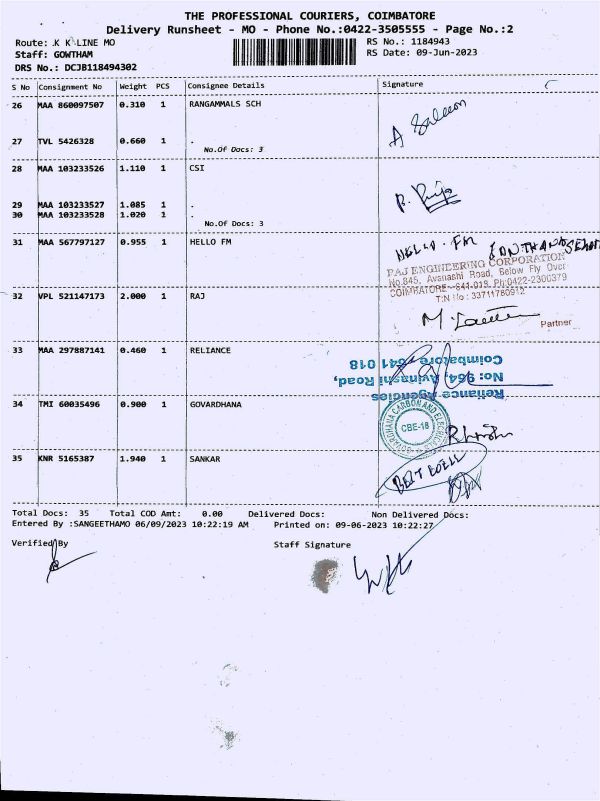 THE PROFESSIONAL COURIERS, COIMBATORE
Delivery Runsheet - MO - Phone No.:0422-3505555 - Page No.:2
Route: K K LINE MO RS No.: 1184943
Staff: GOWTHAM RS Date: 09-Jun-2023
DRS No.: DCJB118494302
S No Consignment No Weight PCS Consignee Details Signature
26 MAA 860097507 0.310 1 RANGAMMALS SCH
27 TVL 5426328 0.660 1 .
No.Of Docs: 3
28 MAA 103233526 1.110 1 CSI
29 MAA 103233527 1.085 1 .
30 MAA 103233528 1.020 1 .
No.Of Docs: 3
31 MAA 567797127 0.955 1 HELLO FM
HELLO FM
RAJ ENGINEERING CORPORATION
No.845, Avanashi Road, Below Fly Over
COIMBATORE - 641 018. Ph:0422-2300379
T:N No : 33711780912
32 VPL 521147173 2.000 1 RAJ
Partner
33 MAA 297887141 0.460 1 RELIANCE
Reliance Agencies
No: 964, Avinashi Road,
Coimbatore - 641 018
34 TMI 60035496 0.900 1 GOVARDHANA
GOVARDHANA CARBON AND ELECTRICALS
CBE-18
35 KNR 5165387 1.940 1 SANKAR
Total Docs: 35 Total COD Amt: 0.00 Delivered Docs: Non Delivered Docs:
Entered By :SANGEETHAMO 06/09/2023 10:22:19 AM Printed on: 09-06-2023 10:22:27
Verified By Staff Signature